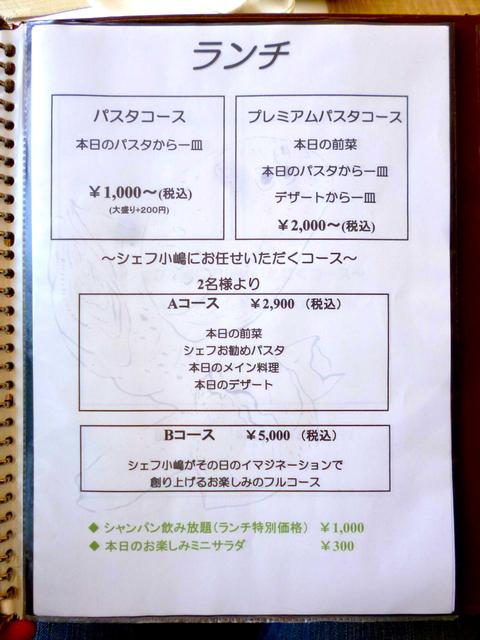 ランチ
パスタコース
本日のパスタから一皿
￥1,000～(税込)
(大盛り+200円)
プレミアムパスタコース
本日の前菜
本日のパスタから一皿
デザートから一皿
￥2,000～(税込)
～シェフ小嶋にお任せいただくコース～
2名様より
Aコース ￥2,900 （税込）
本日の前菜
シェフお勧めパスタ
本日のメイン料理
本日のデザート
Bコース ￥5,000 （税込）
シェフ小嶋がその日のイマジネーションで
創り上げるお楽しみのフルコース
◆ シャンパン飲み放題（ランチ特別価格） ￥1,000
◆ 本日のお楽しみミニサラダ ￥300